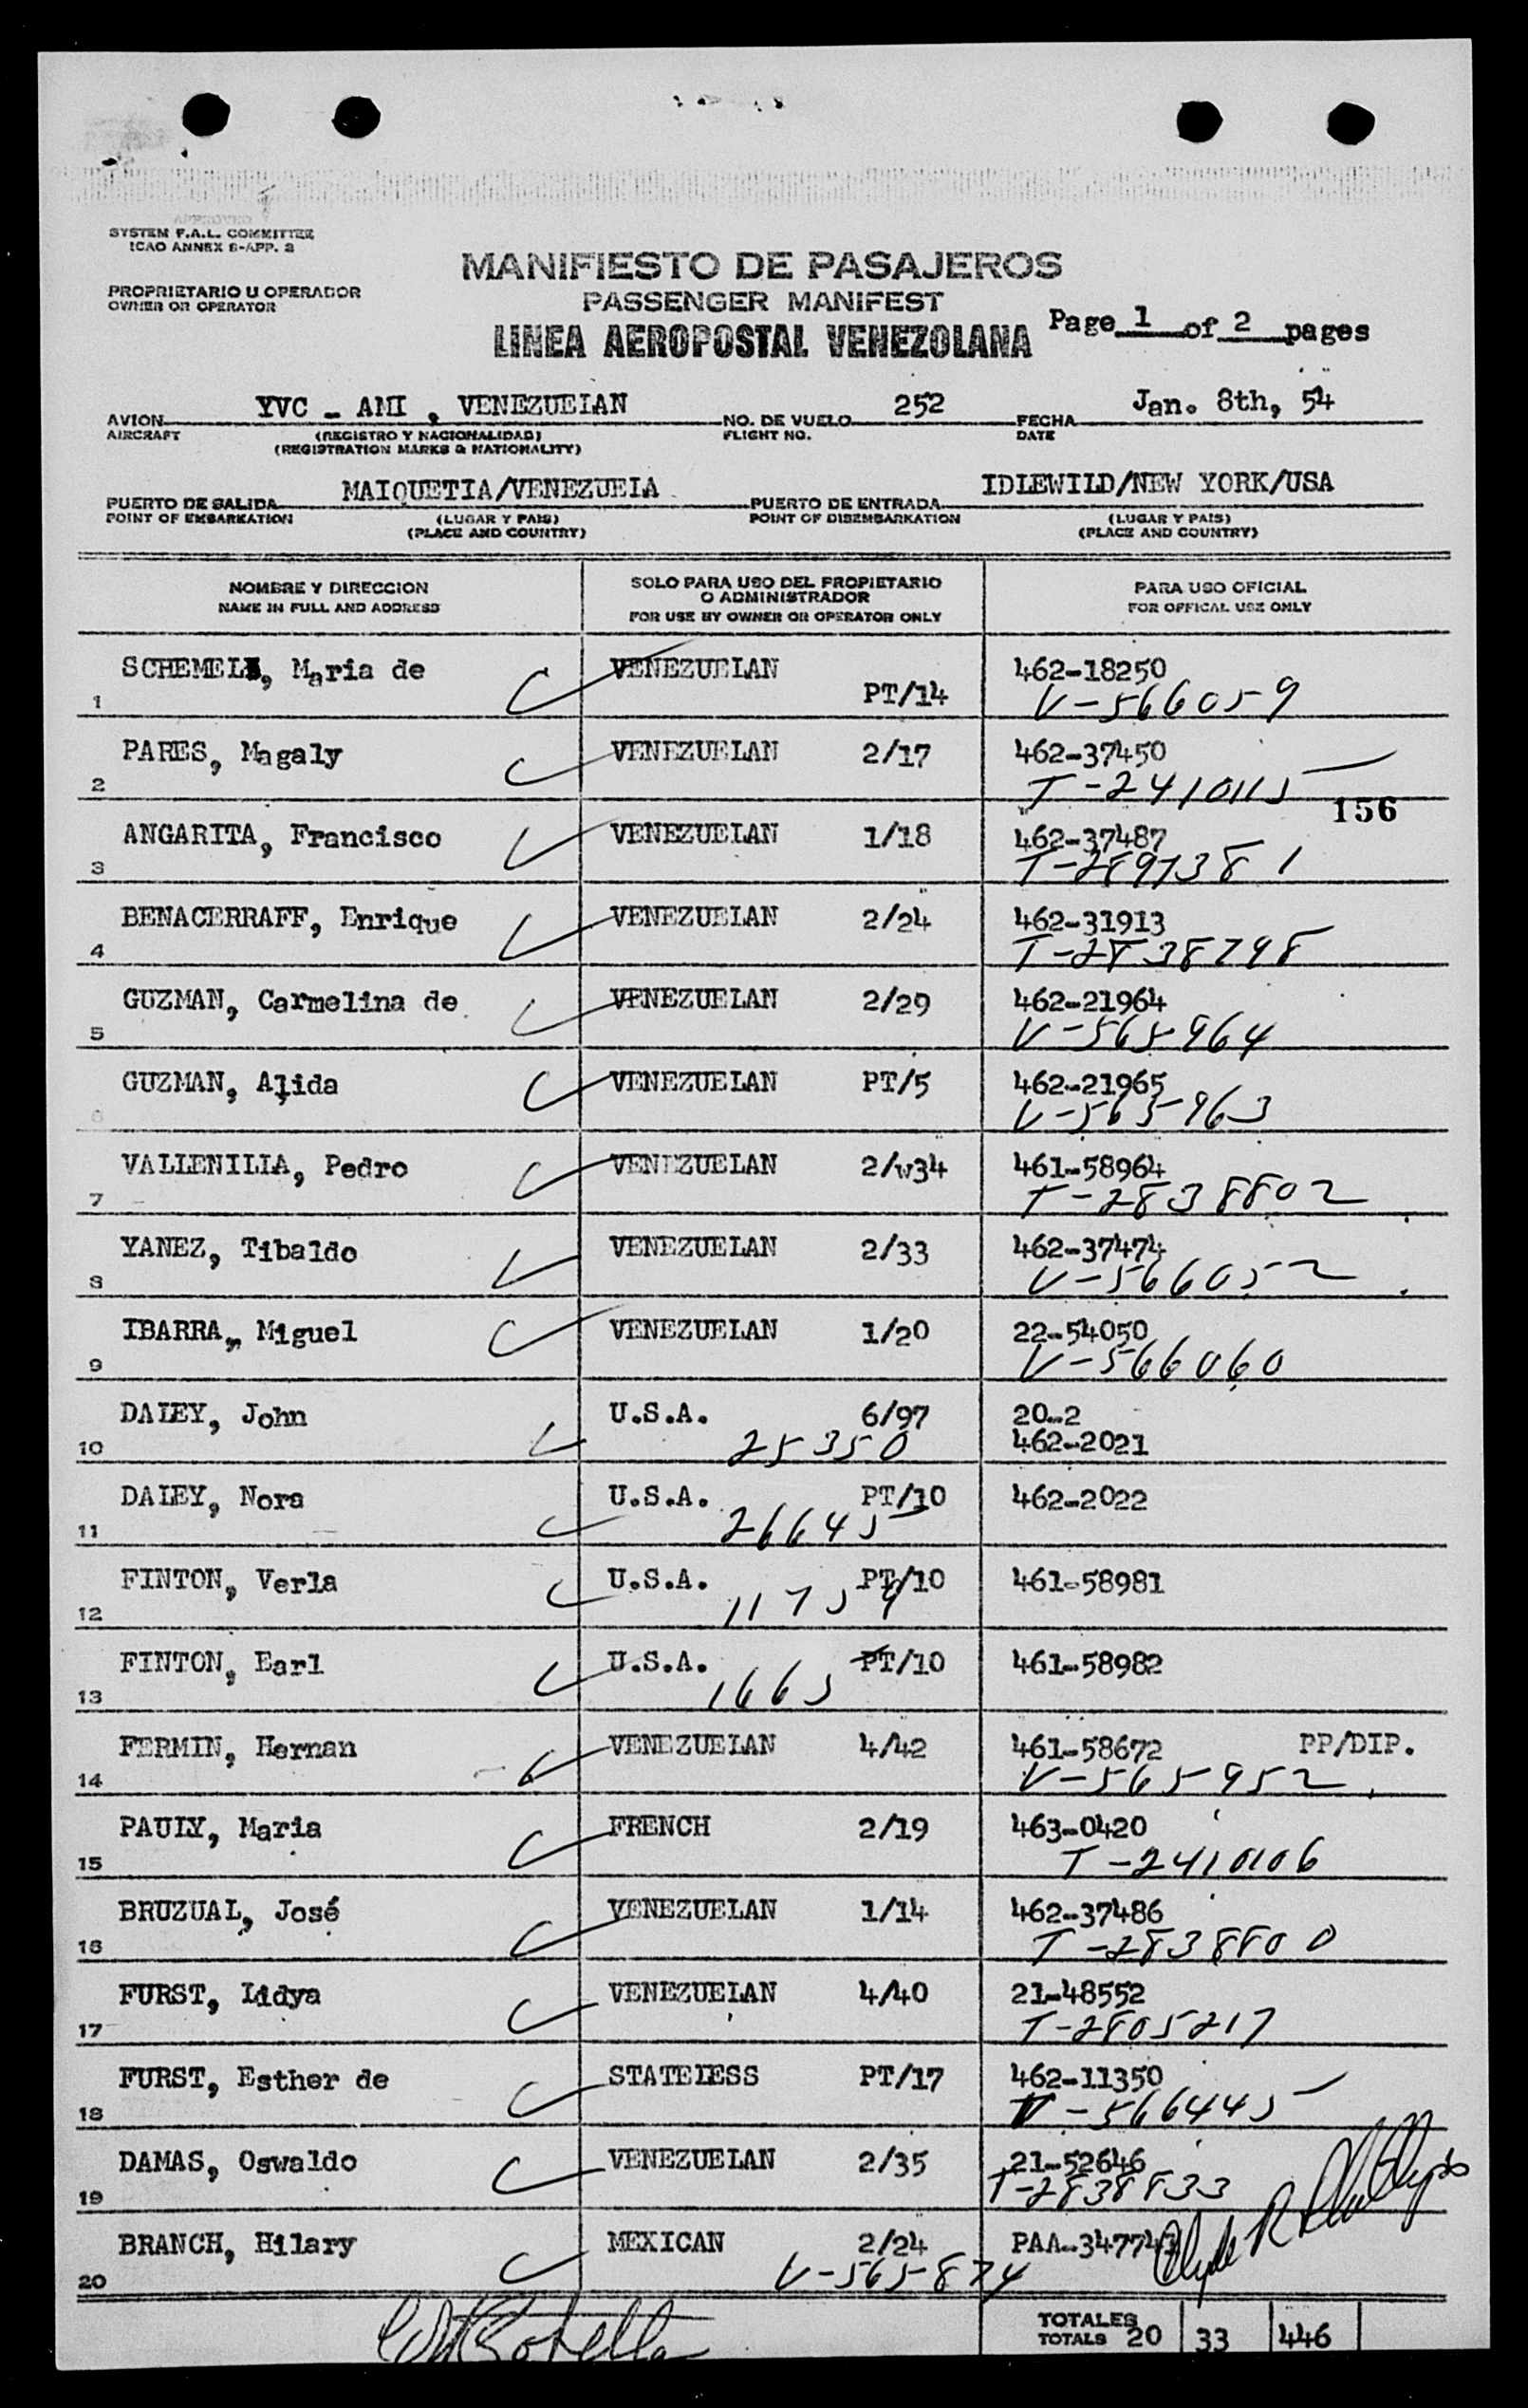 APPROVED
SYSTEM F.A.L. COMMITTEE
ICAO ANNEX 6-APP. 2
PROPRIETARIO U OPERADOR
OWNER OR OPERATOR
MANIFIESTO DE PASAJEROS
PASSENGER MANIFEST
LINEA AEROPOSTAL VENEZOLANA
Page 1 of 2 pages
AVION YVC - AMI , VENEZUELAN NO. DE VUELO 252 FECHA Jan. 8th, 54
AIRCRAFT (REGISTRO Y NACIONALIDAD) FLIGHT NO. DATE
(REGISTRATION MARKS & NATIONALITY)
PUERTO DE SALIDA MAIQUETIA/VENEZUELA PUERTO DE ENTRADA IDLEWILD/NEW YORK/USA
POINT OF EMBARKATION (LUGAR Y PAIS) POINT OF DISEMBARKATION (LUGAR Y PAIS)
(PLACE AND COUNTRY) (PLACE AND COUNTRY)
NOMBRE Y DIRECCION SOLO PARA USO DEL PROPIETARIO PARA USO OFICIAL
O ADMINISTRADOR
NAME IN FULL AND ADDRESS FOR USE BY OWNER OR OPERATOR ONLY FOR OFFICAL USE ONLY
SCHEMEL, Maria de VENEZUELAN 462-18250
1 PT/14 V-566059
PARES, Magaly VENEZUELAN 2/17 462-37450
2 T-2410115
156
ANGARITA, Francisco VENEZUELAN 1/18 462-37487
3 T-2897381
BENACERRAFF, Enrique VENEZUELAN 2/24 462-31913
4 T-2838798
GUZMAN, Carmelina de VENEZUELAN 2/29 462-21964
5 V-565964
GUZMAN, Alida VENEZUELAN PT/5 462-21965
6 V-565963
VALLENILIA, Pedro VENEZUELAN 2/w34 461-58964
7 T-2838802
YANEZ, Tibaldo VENEZUELAN 2/33 462-37474
8 V-566052
IBARRA, Miguel VENEZUELAN 1/20 22-54050
9 V-566060
DALEY, John U.S.A. 6/97 20-2
10 25350 462-2021
DALEY, Nora U.S.A. PT/10 462-2022
11 26645
FINTON, Verla U.S.A. PT/10 461-58981
12 11759
FINTON, Earl U.S.A. PT/10 461-58982
13 1665
FERMIN, Hernan VENEZUELAN 4/42 461-58672 PP/DIP.
14 V-565952
PAULY, Maria FRENCH 2/19 463-0420
15 T-2410106
BRUZUAL, José VENEZUELAN 1/14 462-37486
16 T-2838800
FURST, Lidya VENEZUELAN 4/40 21-48552
17 T-2805217
FURST, Esther de STATELESS PT/17 462-11350
18 V-566445
DAMAS, Oswaldo VENEZUELAN 2/35 21-52646
19 T-2838833
BRANCH, Hilary MEXICAN 2/24
20 V-565874
Clyde R Phillips
TOTALES
TOTALS 20 33 446